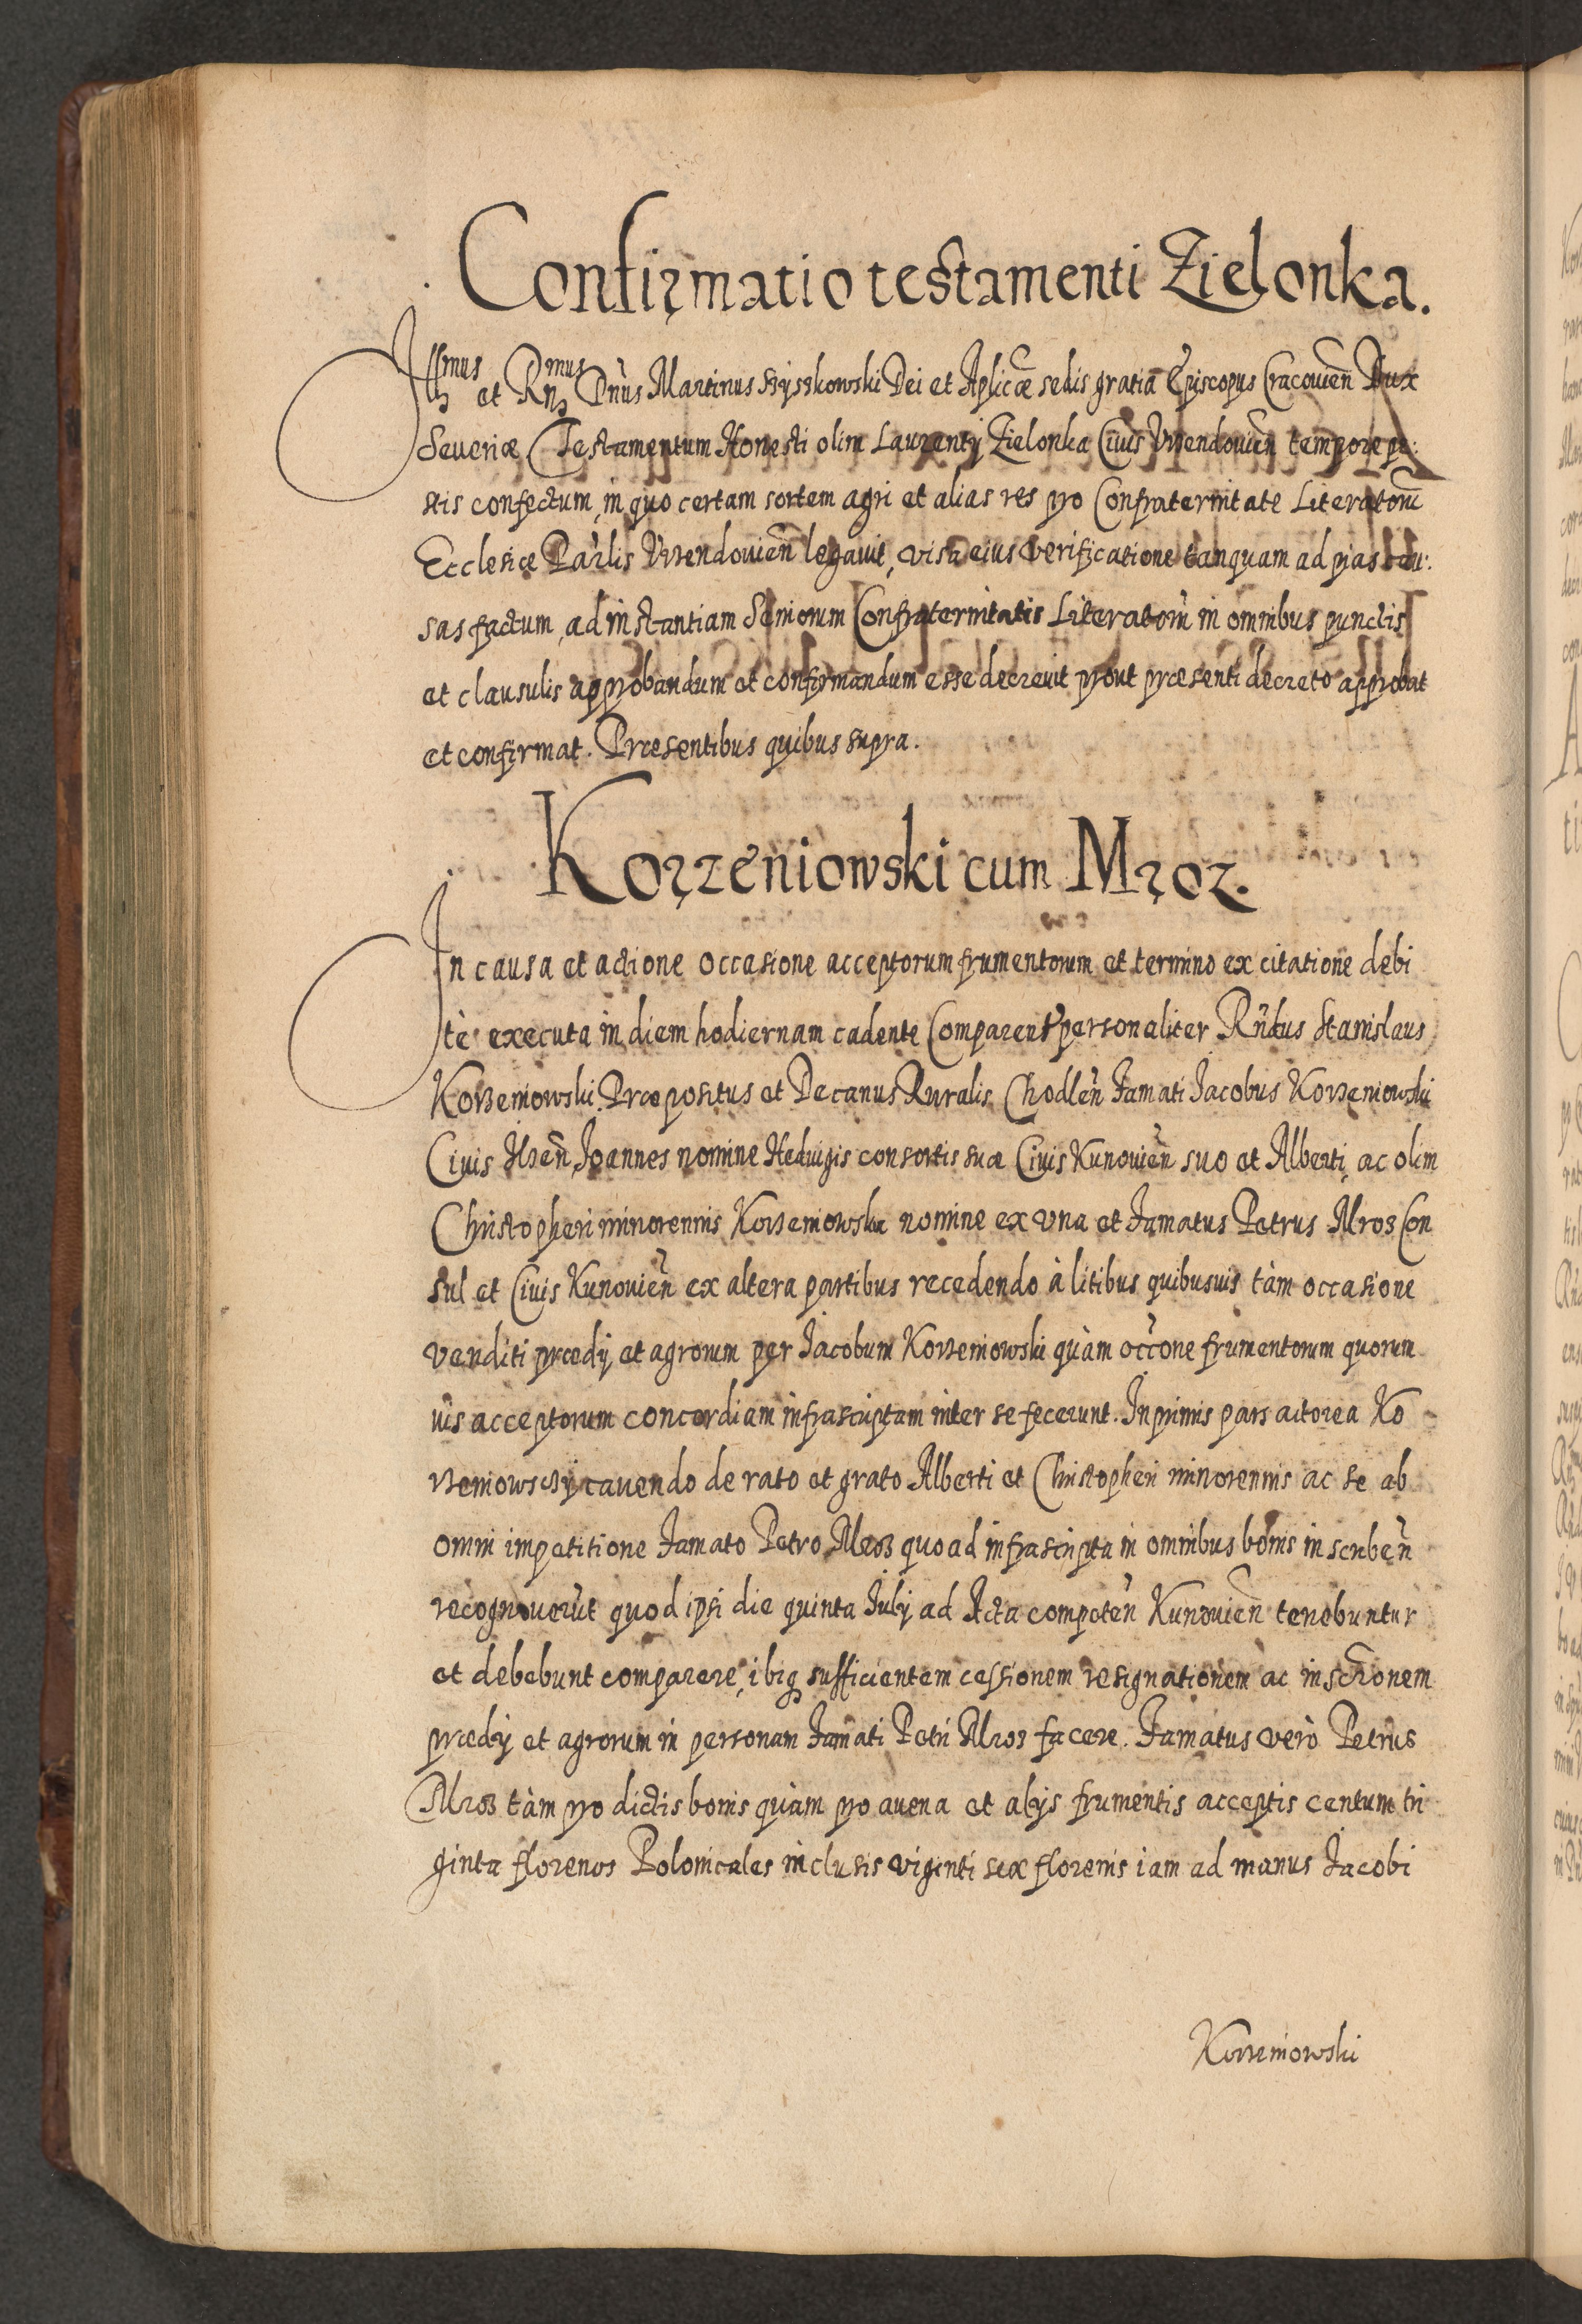 Confirmatio testamenti Zielonka.
Illmus et Rndmus Dnus Martinus Szyszkowski Dei et Aplicæ sedis gratia Episcopus Cracouien Dux
Seueriæ Testamentum Honesti olim Laurentij Zielonka Ciuis Vrzendouien tempore pe:
stis confectum, in quo certam sortem agri et alias res pro Confraternitate Literatoru
Ecclesiæ Parlis Vrzendouien legauit, visa eius verificatione tanquam ad pias cau:
sas factum, ad instantiam Seniorum Confraternitatis Literatoru in omnibus punctis
et clausulis approbandum et confirmandum esse decreuit prout præsenti decreto approbat
et confirmat. Præsentibus quibus supra.
Korzeniowski cum Mroz.
In causa et actione occasione acceptorum frumentorum et termino ex citatione debi
tè executa in diem hodiernam cadente Comparent personaliter Rndus Stanislaus
Korzeniowski Præpositus et Decanus Ruralis Chodlen famati Jacobus Korzeniowski
Ciuis Ilzen, Joannes nomine Heduigis consortis suæ Ciuis Kunouien suo et Alberti, ac olim
Christopheri minorennis Korzeniowska nomine ex vna et famatus Petrus Mroz Con
sul et Ciuis Kunouien ex altera partibus recedendo à litibus quibusuis tàm occasione
venditi prædij et agrorum per Jacobum Korzeniowski quàm occone frumentorum quorum
uis acceptorum concordiam infrascriptam inter se fecerunt. Inprimis pars actorea Ko
rzeniowsczy cauendo de rato et grato Alberti et Christopheri minorennis ac se ab
omni impetitione famato Petro Mroz quo ad infrascripta in omnibus bonis inscriben
recognouerut quod ipsi die quinta July ad Acta competen Kunouien tenebuntur
et debebunt comparere, ibiq sufficientem cessionem resignationem ac inscronem
prædij et agrorum in personam famati Petri Mroz facere. famatus verò Petrus
Mroz tàm pro dictis bonis quàm pro auena et alijs frumentis acceptis centum tri
ginta florenos Polonicales inclusis viginti sex florenis iam ad manus Jacobi
Korzeniowski